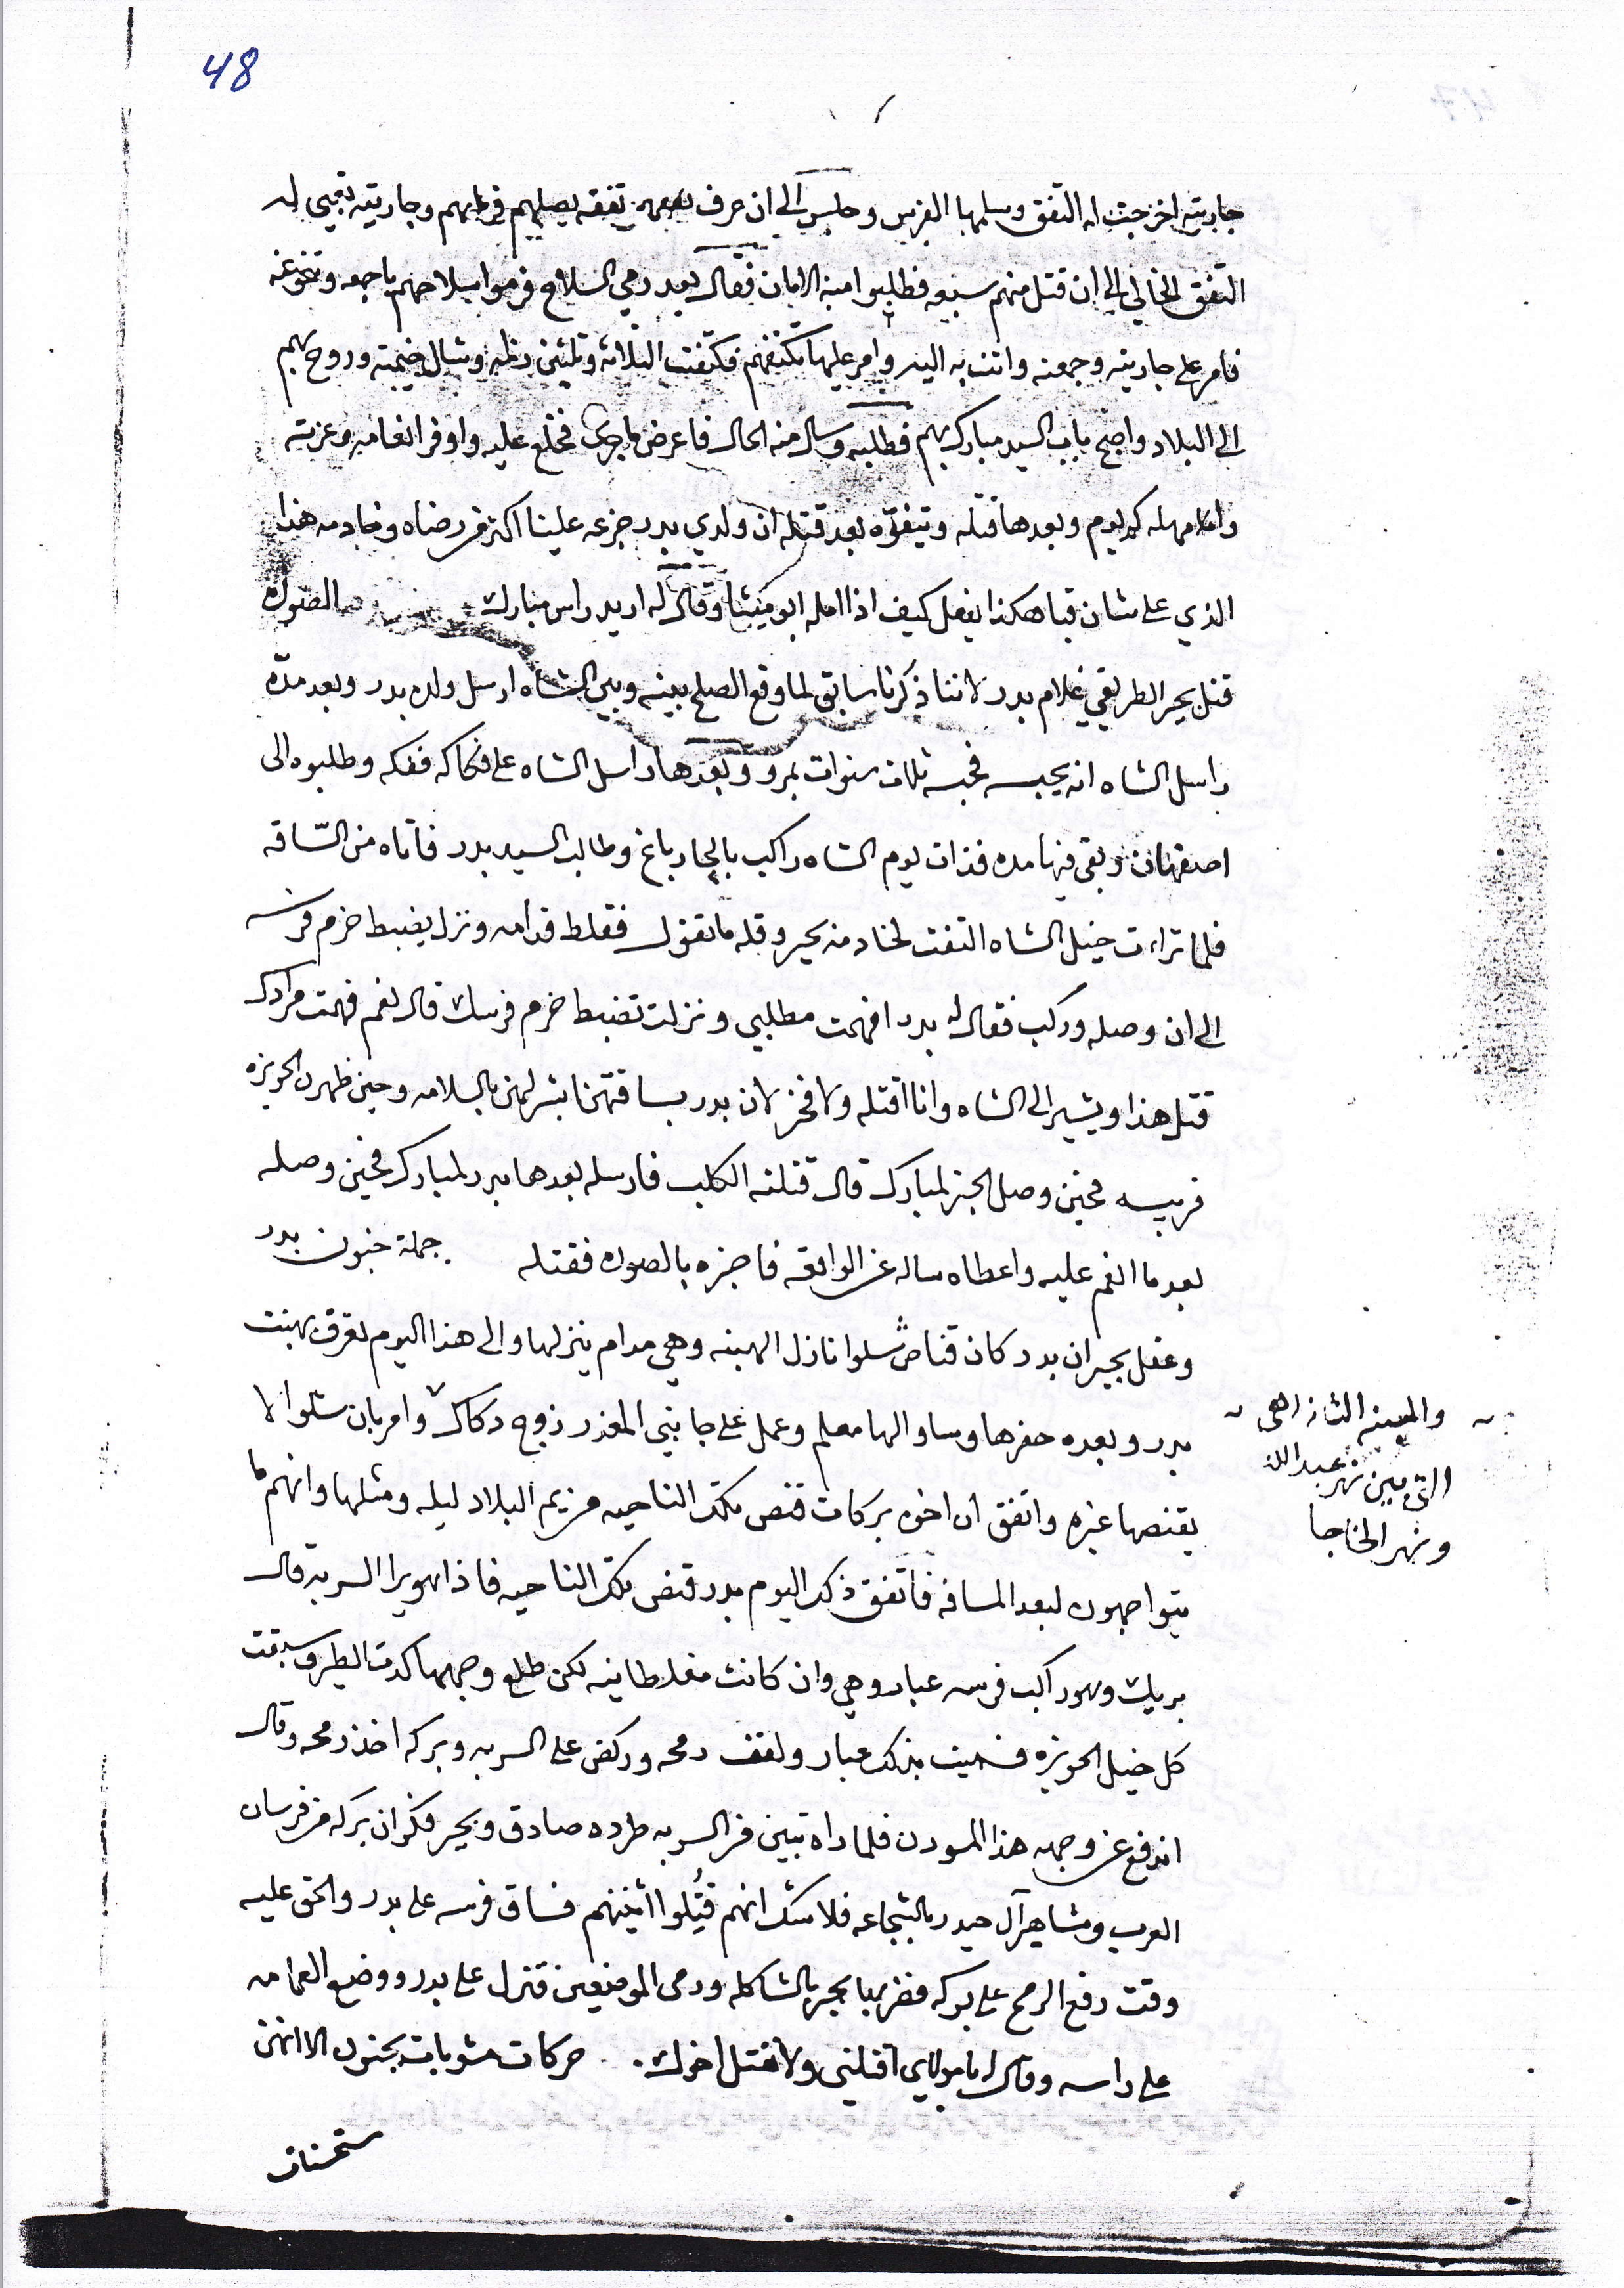 48
جاريته اخرجت له التفق وسلمها الفرس وجلس الى ان حرف تفقه يصليهم وجاريته تعبي له
التفق الخالي الى ان قتل منهم سبعه فطلبوا منه الامان فقال بعد رمي السلاح فرموا سلاحهم باجمعه وتنحو عنه
فامر على جاريته وجمعته واتت به اليه وامر عليها تكتفهم فكتفت الثلاثه وثلثين رجلا وشال خيمته وروح بهم
الى البلاد واصبح بباب السيد مبارك بهم فطلبه وسال منه الحال فاعرض ماجرى فخلع عليه واوفر انعامه وعزته
وامهله كم يوم وبعدها قتله ويتفوّه بعد قتله ان ولدي بدر جزعه علينا اكثر من رضاه وخادمه هذا
الذي على شان قباهكذا يفعل كيف اذا امله ابو ميشا وقال له اريد راس مبارك الصوله
قتل بجير الطريقي غلام بدر لاننا ذكرنا سابق لما وقع الصلح بينه وبين الشاه ارسل ولده بدر وبعد مدّه
راسل الشاه انه يحبسه فحبسه ثلاث سنوات بمرو وبعدها راسل الشاه على فكاكه ففكه وطلبوه الى
اصفهان وبقى فيها مده فذات يوم الشاه راكب بالچار باغ وطالب السيد بدر فاتاه من السّاقه
فلما تراءت خيل الشاه التفت لخادمه بجير وقله ما تقول فغلط قدامه ونزل يضبط خرم فرسه
الى ان وصله وركب فقال له بدر افهمت مطلبي ونزلت تضبط خرم فرسك قال نعم فهمت مرادك
قتل هذا ويشير الى الشاه وانا اقتله ولا فخر لان بدر بساقتهن بالسلامه وحين ظهر من الحويزه
قريب فحين وصل الخبر لمبارك قال قتلته الكلب فارسله بعدها بدر لمبارك فحين وصله
بعد ما انعم عليه واعطاه ساله عن الواقعه فاخبره بالصوله فقتله جملة جنون بدر
وعقل بجير ان بدر كان قناص شلوا نازل الهبنه وهي مدام ينزلها والى هذا اليوم تعرف بهبنت
بدر وبعده حفرها وساوالها معلم وعمل على جانبي المعذر زوج دكاك وامر بان شلوا لا
يقنصها غيره واتفق ان اخوه بركات قنص بتلك الناحيه من يم البلاد ليله ومثلها وانهم ما
يتواجهون لبعد المسافه فاتفق ذلك اليوم بدر قنص بتلك الناحيه فاذا هو يرا السربه قال
بريك وهو راكب فرسه عبار وهي وان كانت مغلطانيه لكن طلع وجهها كدت الطرف سبقت
كل خيل الحويزه فسميت بذلك عبار ولقف رمحه وركض على السربه وبركه اخذ رمحه وقال
اندفع عن وجهه هذا المسودن فلما راه تبين من السربه طرده صادق وبجير فكر ان بركه من فرسان
العرب ومشاهير آل حيدر بالشجاعه فلاشك انهم قُيّلوا اثنينهم فساق فرسه على بدر والحق عليه
وقت رفع الرمح على بركه فضربها بجير بالشاكله ورمى الموضعين فنزل على بدر ووضع العمامه
على راسه وقال له يا مولاي اقتلني ولا تقتل اخوك. حركات مشوبات بجنون الا انهن
ستحسنات
والهبنه الثانيه هي
التي بين نهر عبدالله
ونهر الخاجا